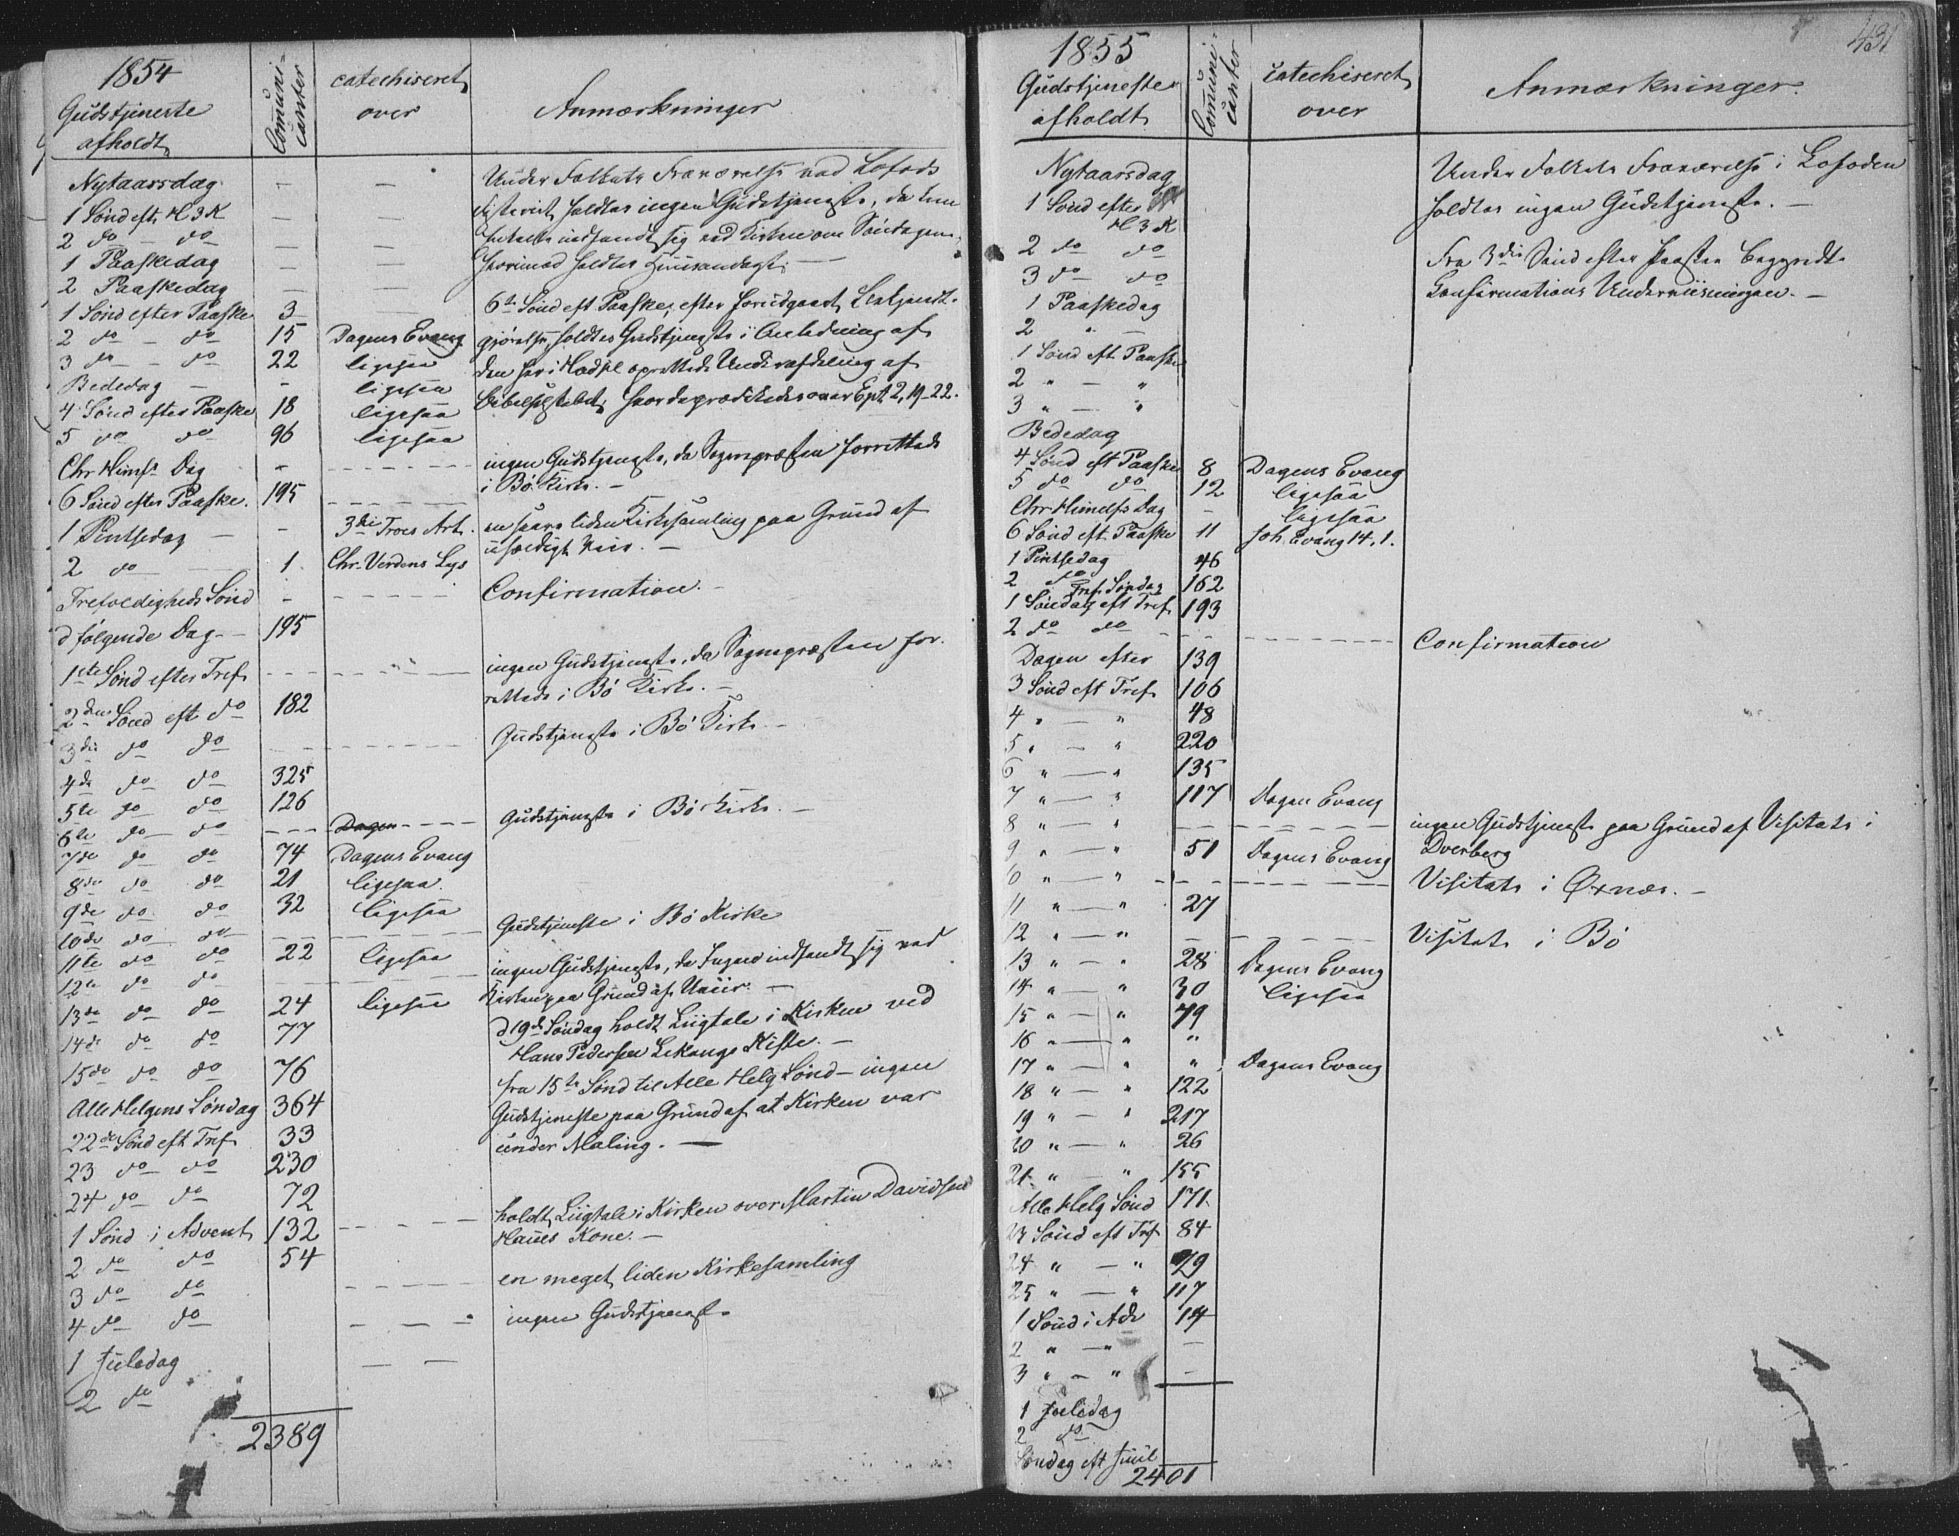 1854
Gudstjeneste
afholdt
Communi-
canter
catechiseret
over
Anmærkninger
Nytaarsdag — —
1 Sønd eft H 3 K — —
2 do — do — —
1 Paaskedag — —
2 Paaskedag — —
1 Sønd efter Paaske 3 —
2 do — do 15 Dagens Evang
3 do — do 22 ligesaa
Bededag — - ligesaa
4 Sønd efter Paaske 18 ligesaa
5 do do 96 ligesaa
Chr Himf. Dag -
6 Sønd efter Paaske. 195
1 Pintsedag — - 3die Troes Art.
2 do 1. Chr. Verdens Lys
Trefoldigheds Sønd -
d følgende Dag - 195
1ste Sønd efter Tref
2den Sønd eft do 182
3die do do
4de do do 325
5te do do 126
6te do do Dagen
7de do do 74 Dagens Evang
8de do do 21 ligesaa.
9de do do 32 ligesaa
10de do do
11te do do 22 ligesaa
12te do do
13de do do 24 ligesaa
14de do do 77
15de do do 76
Alle Helgens Søndag 364
22de Sønd eft Tref 33
23 do do 230
24 do do 72
1 Sønd i Advent 132
2 do do 54
3 do do
4 do do
1 Juledag
2 do
2389
Under Folkets Fraværelse ved Lofods
fisteriet holdtes ingen Gudstjeneste, da
indfandt sig ved Kirken om Søndagene,
hvorimod holdtes Huusandagt. —
6te Sønd eft Paaske, efter forudgaaet Bekjendt-
gjørelse, holdtes Gudstjeneste i Anledning af
den her i Hadsel oprettede Underafdeling af
Bibelselskabet, hvor da prædikedes over Eph 2, 19-22.
ingen Gudstjeneste, da Sognepræsten forrettede
i Bø Kirke. —
en saare liden Kirkesamling paa Grund af
usædigt Veir. —
Confirmation. —
ingen Gudstjeneste, da Sognepræsten for-
rettede i Bø Kirke. —
Gudstjeneste i Bø Kirke —
Gudstjeneste i Bø Kirke. —
Gudstjeneste i Bø Kirke
ingen Gudstjeneste, da Ingen indfandt sig ved
Kirken paa Grund af Uveir. —
d 19de Søndag holdt Liigtale i Kirken ved
Hans Pedersen Lekangs Kiste. —
fra 15te Sønd til Alle Helg Sønd — ingen
Gudstjeneste paa Grund af at Kirken var
under Maling. —
holdt Liigtale i Kirken over Martin Davidsens
Haues Kone. —
en meget liden Kirkesamling
ingen Gudstjeneste
431
1855
Gudstjenester
afholdt
Communi-
canter
catechiseret
over
Anmærkninger.
Nytaarsdag
1 Sønd efter
H 3 K
2 do do
3 do do
1 Paaskedag
2 " —
1 Sønd eft Paaske
2 " — "
3 " — "
Bededag
4 Sønd eft Paaske 8 Dagens Evang
5 do do 12 ligesaa
Chr Himelfs Dag - ligesaa
6 Sønd eft. Paaske 11 Joh Evang 14, 1.
1 Pintsedag 46
2 do Tref. Søndag 162
1 Søndag eft Tref 193
2 do do
Dagen efter 139
3 Sønd eft Tref 106
4 " — " 48
5 " — " 220
6 " — " 135
7 " — " 117 Dagens Evang
8 " — "
9 " — " 51 Dagens Evang
10 " — "
11 " — " 27
12 " — "
13 " — " 28 Dagens Evang
14 " — " 30 ligesaa
15 " — " 49
16 " — " "
17 " — " " Dagens Evang
18 " — " 122
19 " — " 217
20 " — " 26
21 " — " 155
Alle Helg Sønd 171
23 Sønd eft Tref 84
24 " — " 29
25 " — " 117
1 Sønd i Adv 14
2 " — " —
3 " — " —
1 Juledag
2 do
Søndag eft Juul
2401
Under Folkets Fraværelse i Lofoden
holdtes ingen Gudstjeneste. —
Fra 3die Sønd efter Paaske begyndte
Confirmations Underviisningen. —
Confirmation
ingen Gudstjeneste paa Grund af Visitats i
Dverberg
Visitats i Øxnæs. —
Visitats i Bø